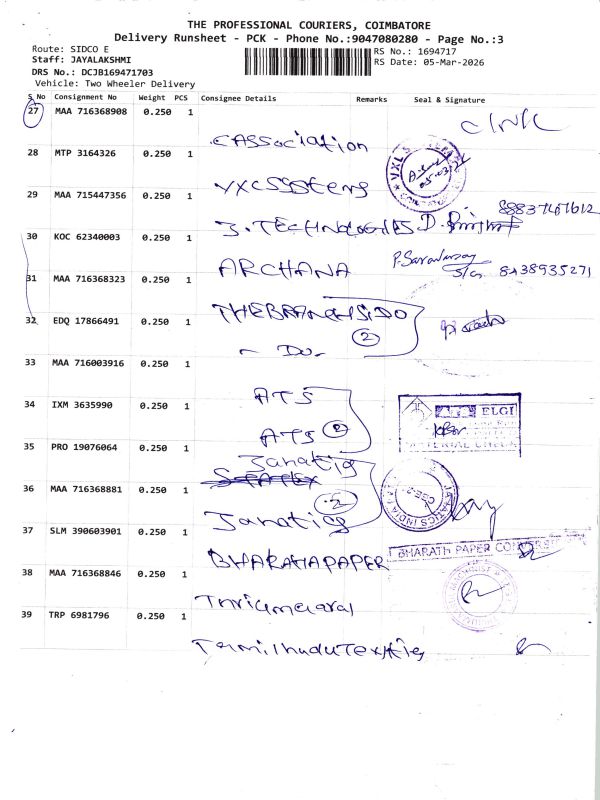 THE PROFESSIONAL COURIERS, COIMBATORE
Delivery Runsheet - PCK - Phone No.:9047080280 - Page No.:3
Route: SIDCO E
RS No.: 1694717
Staff: JAYALAKSHMI
RS Date: 05-Mar-2026
DRS No.: DCJB169471703
Vehicle: Two Wheeler Delivery
S No Consignment No Weight PCS Consignee Details Remarks Seal & Signature
27 MAA 716368908 0.250 1
CASSociation
28 MTP 3164326 0.250 1
VXL
29 MAA 715447356 0.250 1
J. TECHNOLOGIES D.
30 KOC 62340003 0.250 1
ARCHANA P. Saravanasamy
S/G 8438935271
31 MAA 716368323 0.250 1
THEBRANCHSIDO
2
32 EDQ 17866491 0.250 1
- Do -
33 MAA 716003916 0.250 1
ATS
34 IXM 3635990 0.250 1
ELGI
ATS 2
35 PRO 19076064 0.250 1
Janatig
36 MAA 716368881 0.250 1
2
Janatig
37 SLM 390603901 0.250 1
BHARATH PAPER
BHARATHAPAPER
38 MAA 716368846 0.250 1
Thriumagal
39 TRP 6981796 0.250 1
TamilnaduTextiles